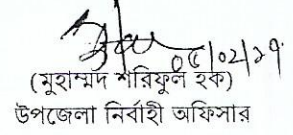 ০৫/০২/২৭
(মুহাম্মদ শরিফুল হক)
উপজেলা নির্বাহী অফিসার